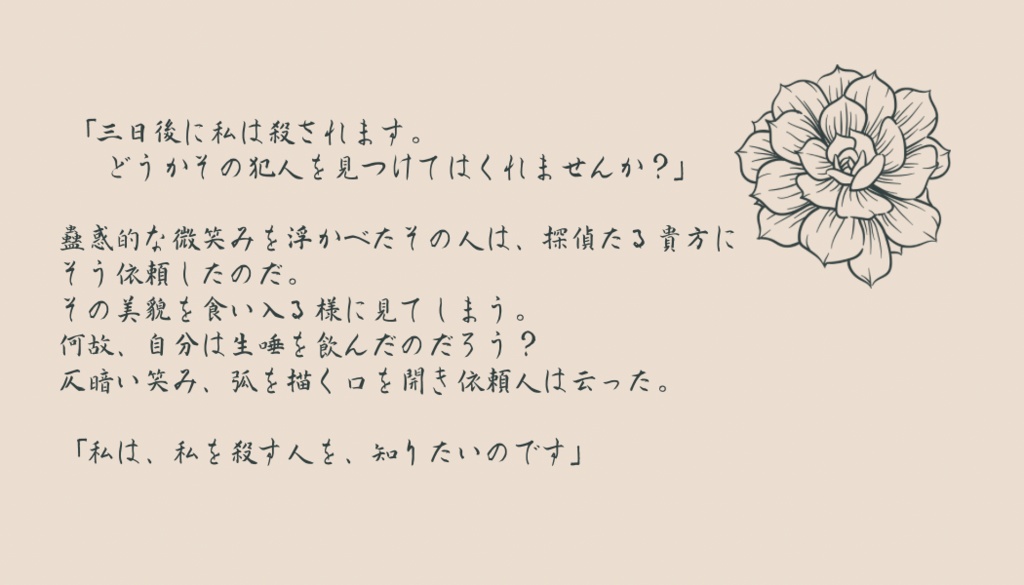 「三日後に私は殺されます。
どうかその犯人を見つけてはくれませんか？」
蠱惑的な微笑みを浮かべたその人は、探偵たる貴方に
そう依頼したのだ。
その美貌を食い入る様に見てしまう。
何故、自分は生唾を飲んだのだろう？
仄暗い笑み、弧を描く口を開き依頼人は云った。
「私は、私を殺す人を、知りたいのです」